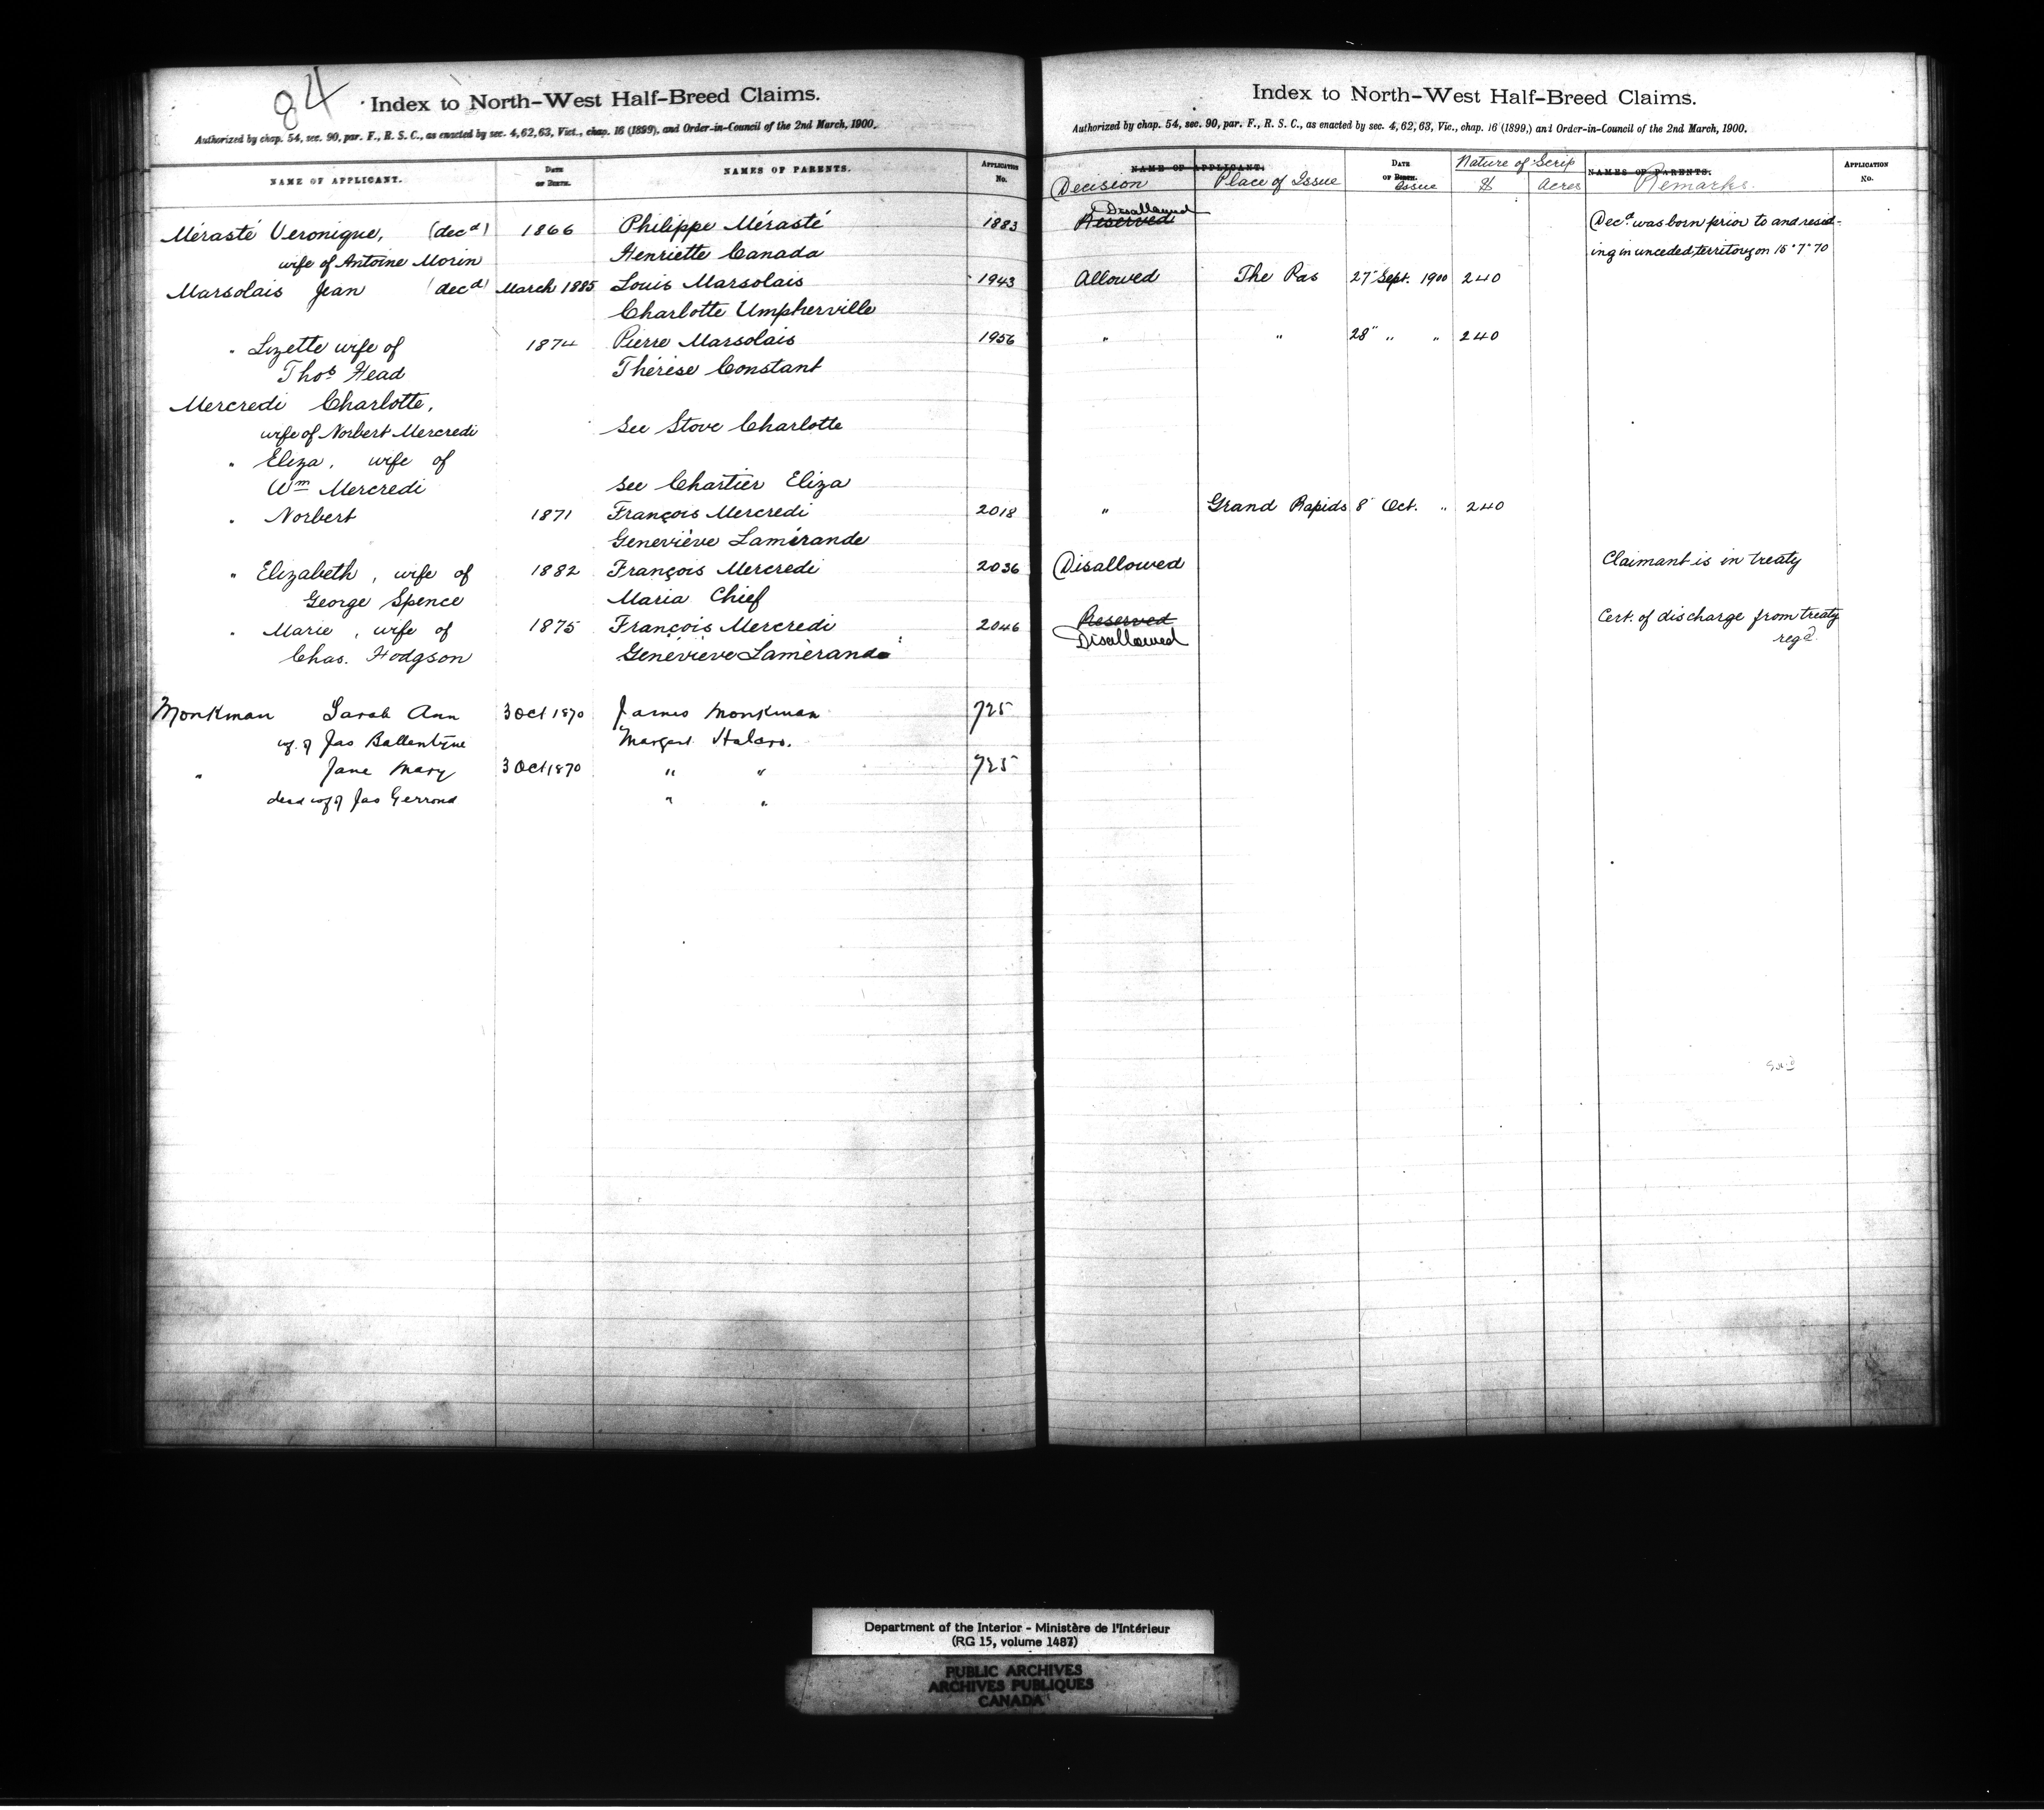 84
Index to North-West Half-Breed Claims.
Authorized by chap. 54, sec. 90, par. F., R. S. C., as enacted by sec. 4, 62, 63, Vict., chap. 16 (1899), and Order-in-Council of the 2nd March, 1900.
NAME OF APPLICANT. DATE OF BIRTH. NAMES OF PARENTS. APPLICATION No.
Mérasté Veronique, (decd) 1866 Philippe Mérasté 1883
wife of Antoine Morin Henriette Canada
Marsolais Jean (decd) March 1885 Louis Marsolais 1943
Charlotte Umpherville
" Lizette wife of 1874 Pierre Marsolais 1956
Thos Head Thérèse Constant
Mercredi Charlotte,
wife of Norbert Mercredi see Stove Charlotte
" Eliza, wife of
Wm Mercredi see Chartier Eliza
" Norbert 1871 François Mercredi 2018
Geneviève Lamérande
" Elizabeth, wife of 1882 François Mercredi 2036
George Spence Maria Chief
" Marie, wife of 1875 François Mercredi 2046
Chas. Hodgson Geneviève Lamérande
Monkman Sarah Ann 3 Oct 1870 James Monkman 725
wf. of Jas Ballentyne Margaret Halcro.
" Jane Mary 3 Oct 1870 " " 725
dead wf of Jas Gerrond " "
Index to North-West Half-Breed Claims.
Authorized by chap. 54, sec. 90, par. F., R. S. C., as enacted by sec. 4, 62, 63, Vic., chap. 16 (1899,) and Order-in-Council of the 2nd March, 1900.
NAME OF APPLICANT. DATE OF BIRTH. Nature of Scrip NAMES OF PARENTS. APPLICATION No.
Decision Place of Issue Issue $ Acres Remarks
Disallowed
Reserved Decd. was born prior to and resid-
ing in unceded territory on 15"7"70
Allowed The Pas 27" Sept. 1900 240
" " 28" " " 240
" Grand Rapids 8" Oct. " 240
Disallowed Claimant is in treaty
Reserved Cert. of discharge from treaty
Disallowed reqd.
Department of the Interior - Ministère de l'Intérieur
(RG 15, volume 1487)
PUBLIC ARCHIVES
ARCHIVES PUBLIQUES
CANADA